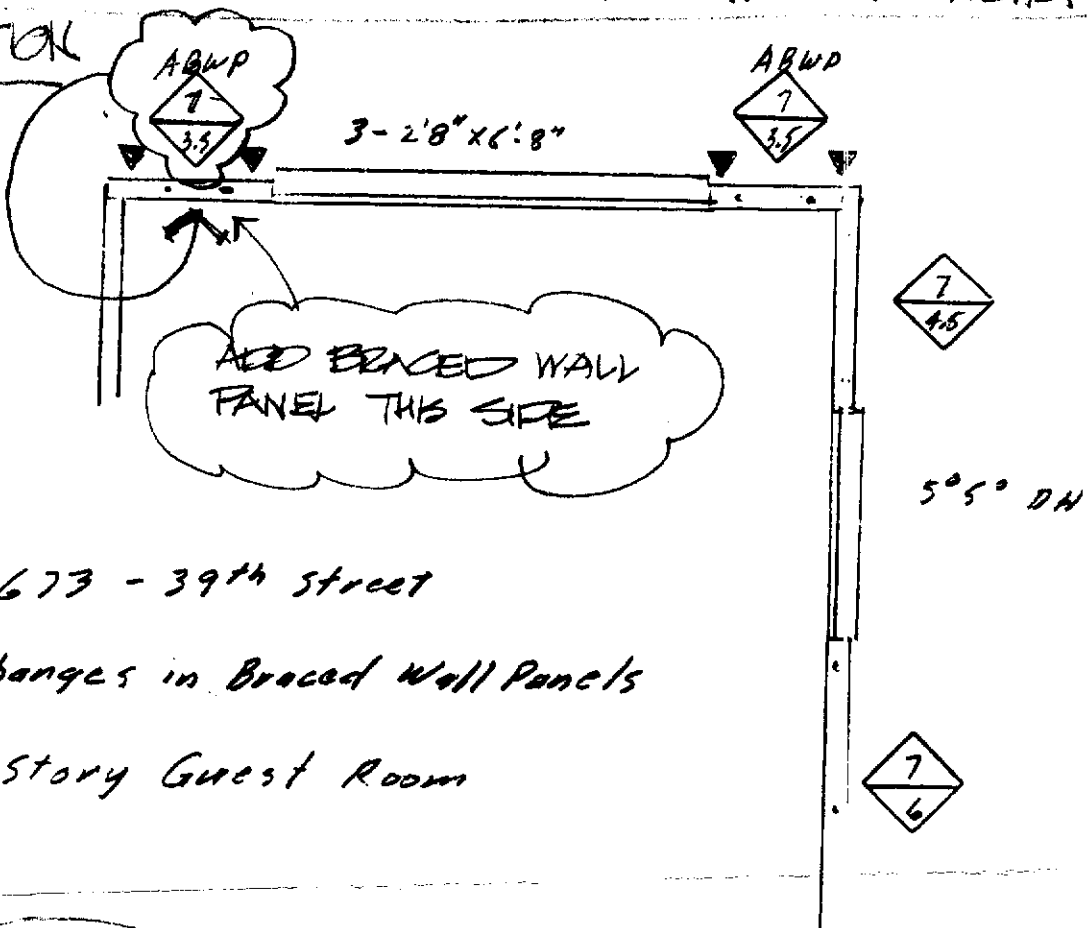 ABWP
7
3.5
3-2'8"x6'8"
ABWP
7
3.5
7
4.5
ADD BRACED WALL
PANEL THIS SIDE
5° 5° DH
673 - 39th Street
hanges in Braced Wall Panels
Story Guest Room
7
6